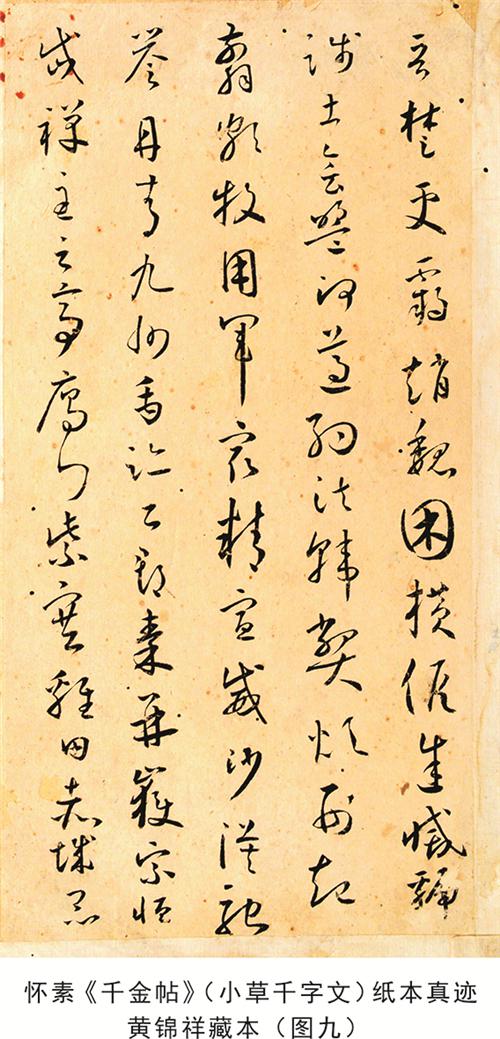 晉楚更霸趙魏困橫假途滅虢
踐土會盟何遵約法韓弊煩刑起
翦頗牧用軍最精宣威沙漠馳
譽丹青九州禹跡百郡秦并嶽宗恒
岱禪主云亭鴈門紫塞雞田赤城昆
怀素《千金帖》（小草千字文）纸本真迹
黄锦祥藏本（图九）